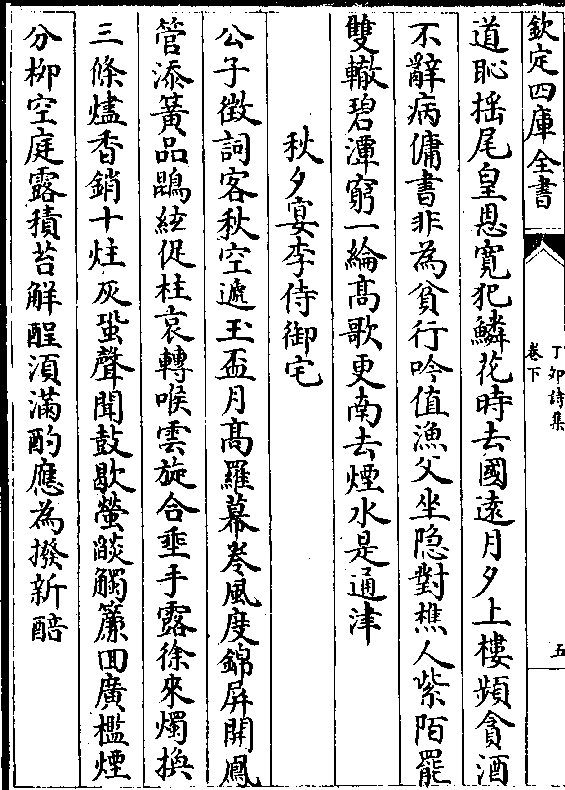 欽定四庫全書
丁卯詩集
卷下
五
道恥揺尾皇恩寛犯鱗花時去國逺月夕上樓頻貪酒
不辭病傭書非為貧行吟值漁父坐隠對樵人紫陌罷
雙轍碧潭窮一綸髙歌更南去煙水是通津
秋夕宴李侍御宅
公子徴詞客秋空遞玉盃月髙羅幕巻風度錦屏開鳳
管添簧品鵾絃促柱哀轉喉雲旋合垂手露徐來燭換
三條燼香銷十炷灰蛩聲聞鼓歇螢燄觸簾囘廣檻煙
分栁空庭露積苔解酲湏滿酌應為撥新醅